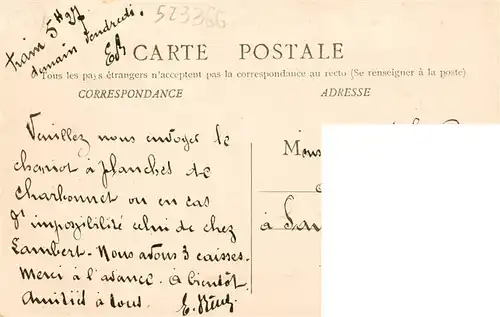 train 5h27
demain vendredi.
523366
CARTE POSTALE
Tous les pays étrangers n'acceptent pas la correspondance au recto (Se renseigner à la poste)
CORRESPONDANCE
ADRESSE
Veuillez nous envoyer le
chariot à planches de
Charbonnet ou en cas
d'impossibilité celui de chez
Lambert - Nous avons 3 caisses.
Merci à l'avance. à bientôt
Amitié à tous.
M
à